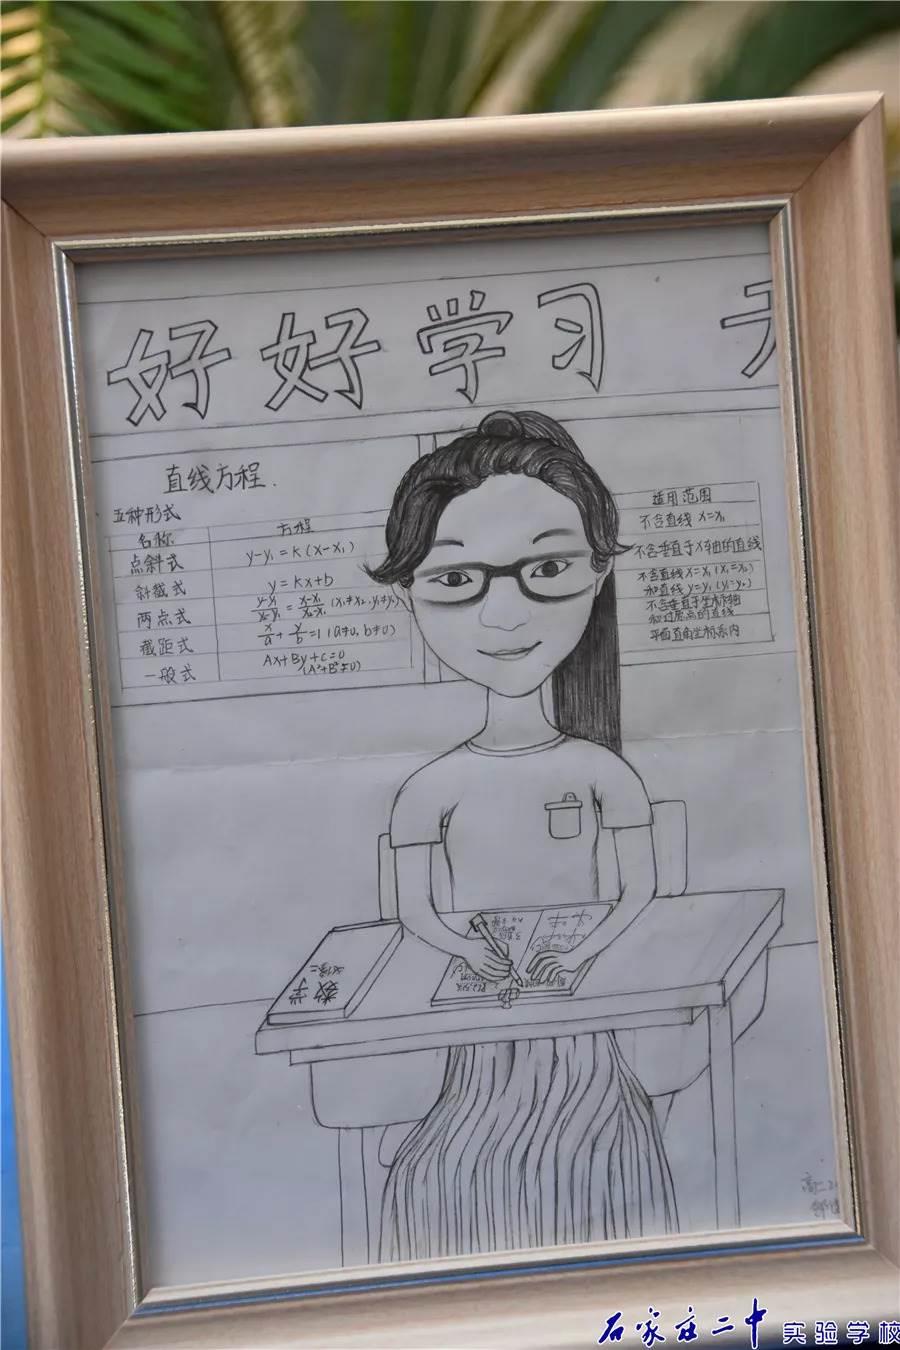 好好学习 天
直线方程.
五种形式
名称 方程 适用范围
点斜式 y-y₁=k(x-x₁) 不含直线 x=x₁
斜截式 y=kx+b 不含垂直于x轴的直线
两点式 y-y₁/y₂-y₁=x-x₁/x₂-x₁ (x₁≠x₂,y₁≠y₂) 不含直线x=x₁(x₁=x₂)和直线y=y₁(y₁=y₂)
截距式 x/a+y/b=1(a≠0,b≠0) 不含垂直于坐标轴和过原点的直线
一般式 Ax+By+C=0 (A²+B²≠0) 平面直角坐标系内
数学
必修二
高二
石家庄二中 实验学校